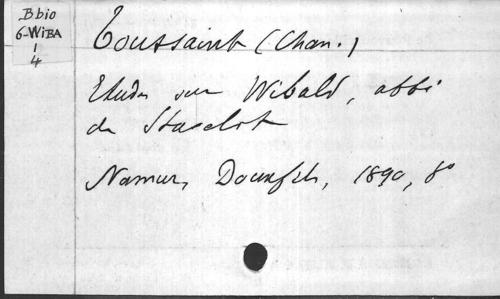 Bbio
6-WIBA
1
4
Toussaint (Chan.)
Etudes sur Wibald, abbé
de Stavelot
Namur, Doux fils, 1890, 8°